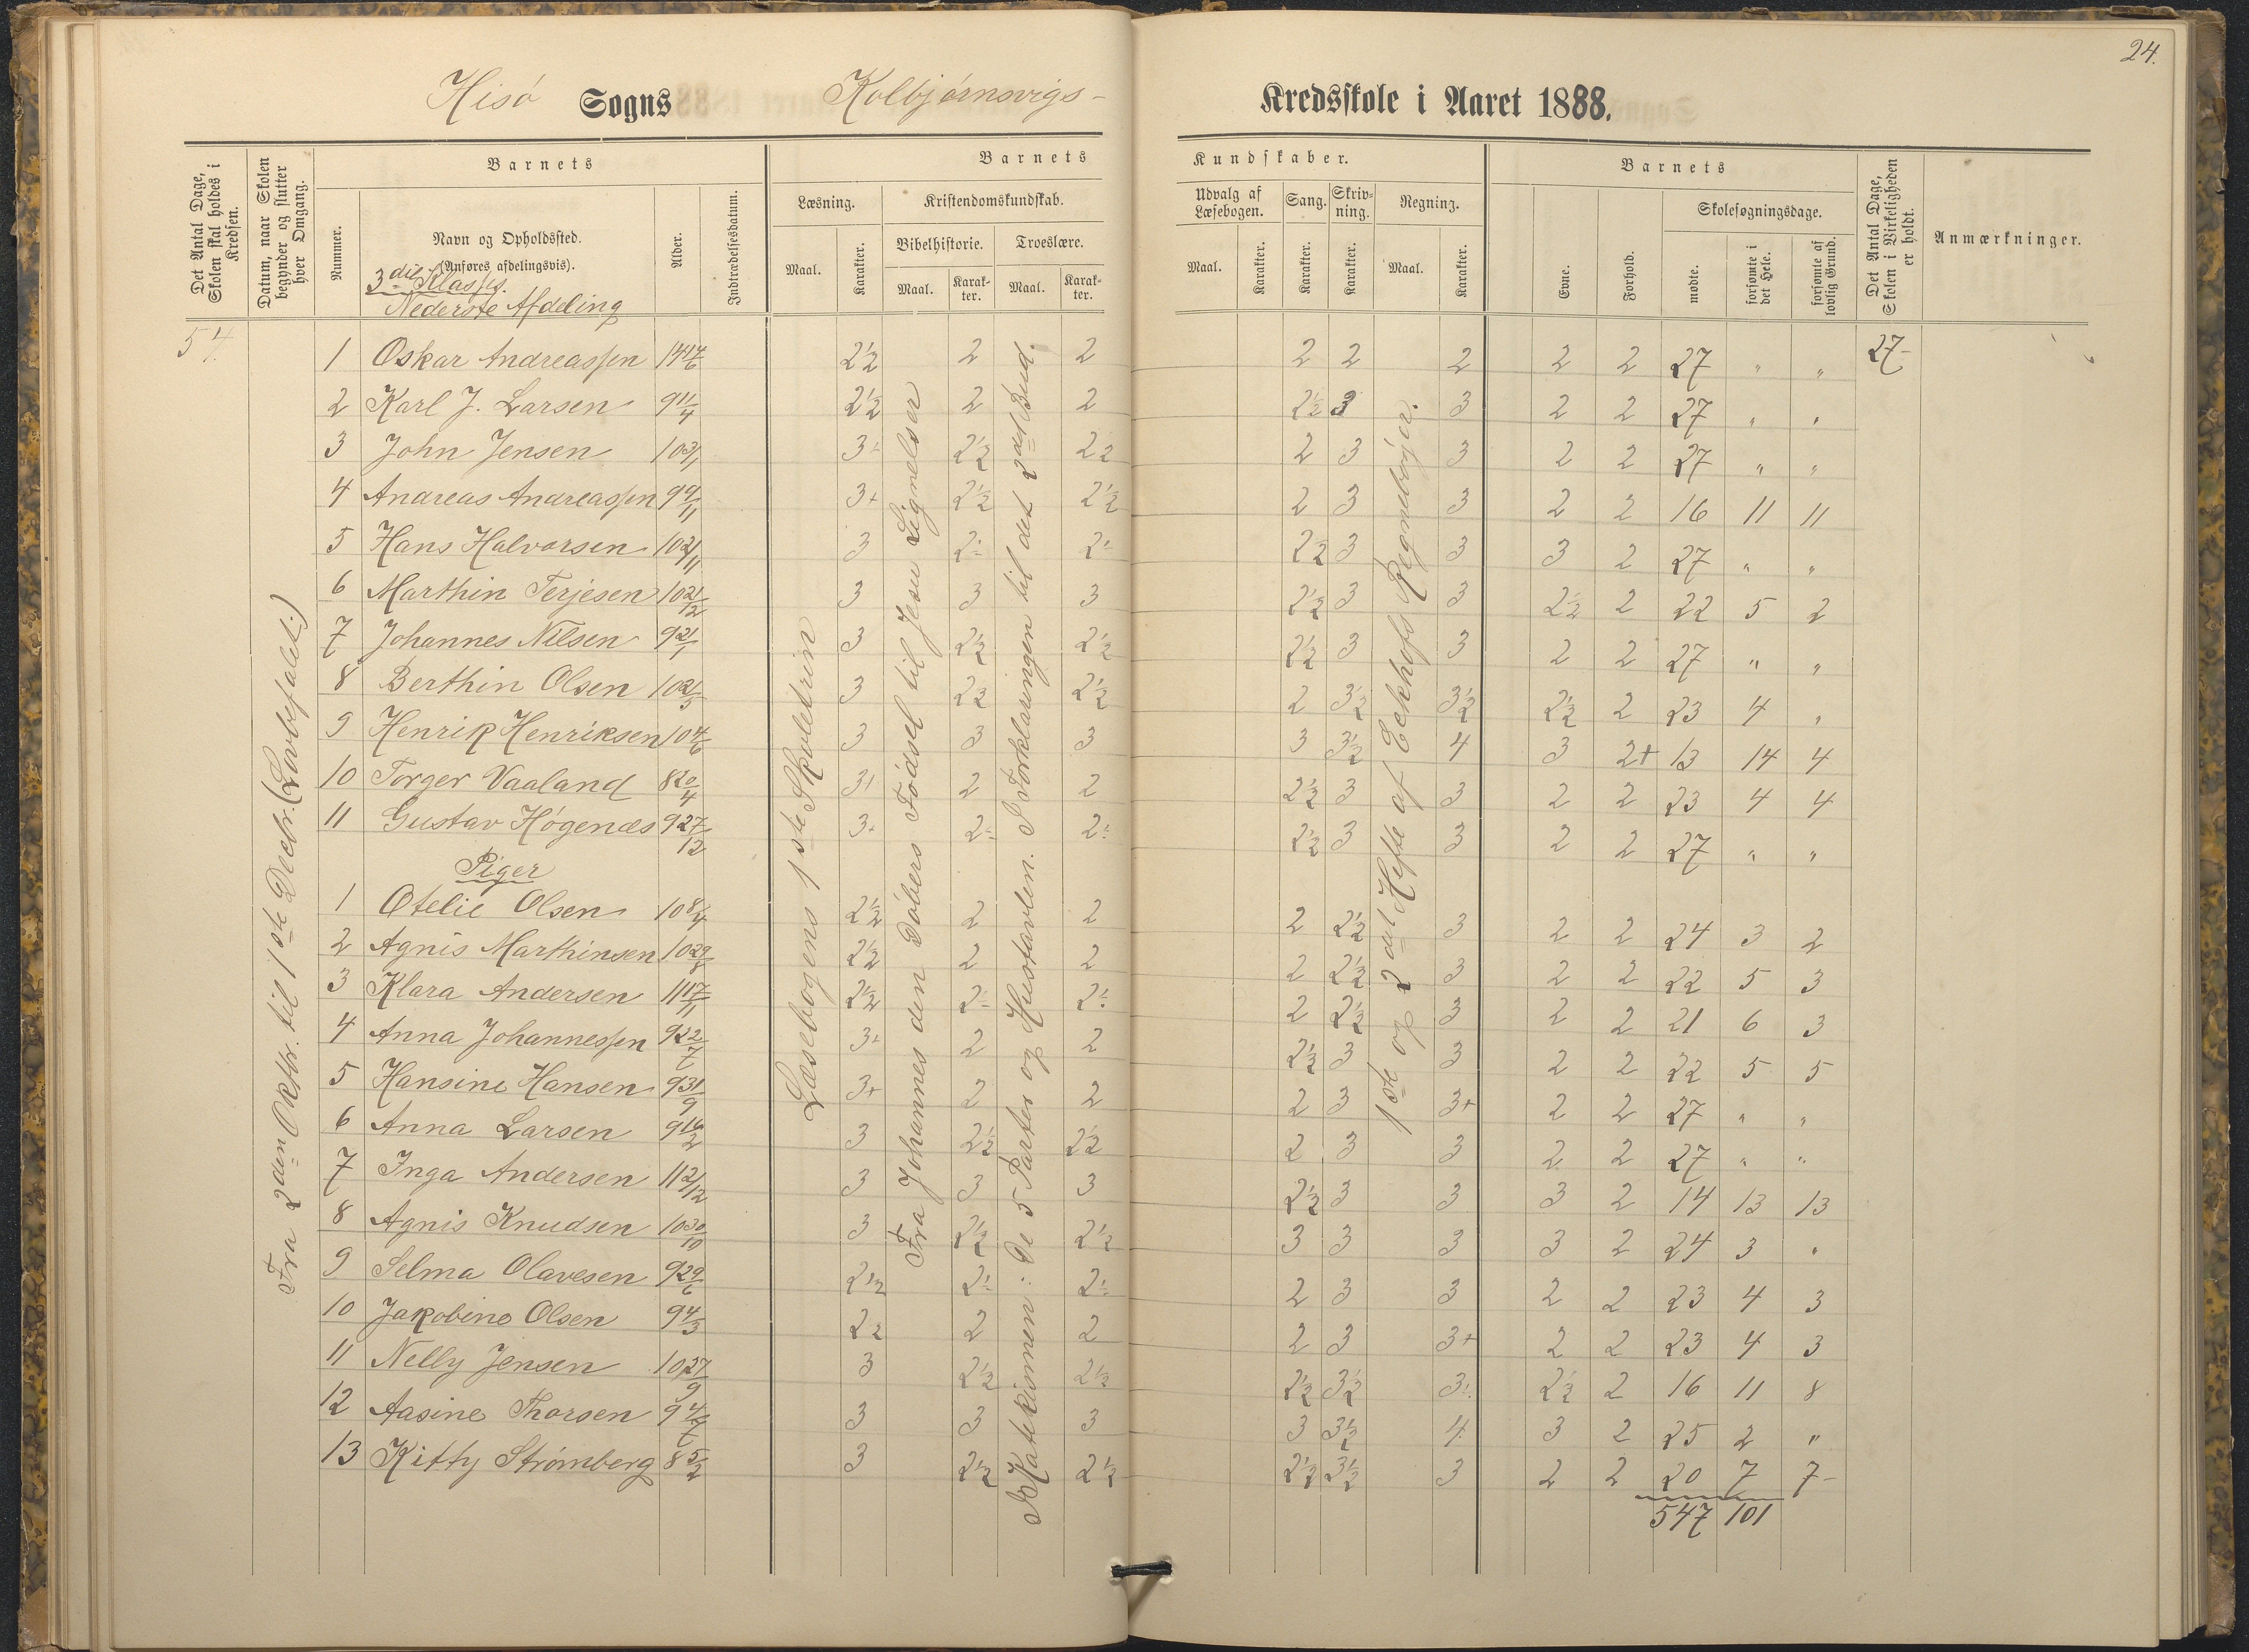 24.
Hisö Sogns Kolbjörnsvigs- Kredsskole i Aaret 1888.
Det Antal Dage, Skolen skal holdes i Kredsen.
Datum, naar Skolen begynder og slutter hver Omgang.
Nummer.
Barnets
Navn og Opholdssted.
(Anføres afdelingsvis).
3die Klasses.
Nederste Afdeling
Alder.
Indtrædelsesdatum.
Barnets Kundskaber.
Læsning.
Maal. Karakter.
Kristendomskundskab.
Bibelhistorie. Troeslære.
Maal. Karakter. Maal. Karakter.
Udvalg af Læsebogen.
Maal. Karakter.
Sang. Karakter.
Skrivning. Karakter.
Regning.
Maal. Karakter.
Barnets
Evne. Forhold.
Skolesøgningsdage.
mødte. forsømte i det Hele. forsømte af lovlig Grund.
Det Antal Dage, Skolen i Virkeligheden er holdt.
Anmærkninger.
54.
Fra 2den Oktbr. til 1ste Decbr. (Lovbefalet.)
Læsebogens 1ste Skoletrin
Fra Johannes den Döbers Födsel til Jesu Lignelser
Katekismen: De 5 Parter og Hustavlen. I Forklaringen til det 2det Bud.
1ste og 2det Hefte af Eckhofs Regnebøjer.
1 Oskar Andreassen 14 14/6 2½ 2 2 2 2 2 2 2 27 " " 27-
2 Karl J. Larsen 9 11/4 2½ 2 2 2½ 3 3 2 2 27 " "
3 John Jensen 10 3/1 3÷ 2½ 2½ 2 3 3 2 2 27 " "
4 Andreas Andreassen 9 9/11 3+ 2½ 2½ 2 3 3 2 2 16 11 11
5 Hans Halvorsen 10 21/11 3 2÷ 2÷ 2½ 3 3 3 2 27 " "
6 Marthin Terjesen 10 21/12 3 3 3 2½ 3 3 2½ 2 22 5 2
7 Johannes Nilsen 9 21/1 3 2½ 2½ 2½ 3 3 2 2 27 " "
8 Berthin Olsen 10 21/3 3 2½ 2½ 2 3½ 3½ 2½ 2 23 4 "
9 Henrik Henriksen 10 4/6 3 3 3 3 3½ 4 3 2+ 13 14 4
10 Torger Vaaland 8 20/4 3+ 2 2 2½ 3 3 2 2 23 4 4
11 Gustav Högenæs 9 27/12 3+ 2÷ 2÷ 2½ 3 3 2 2 27 " "
Piger
1 Otelie Olsen 10 8/4 2½ 2 2 2 2½ 3 2 2 24 3 2
2 Agnis Marthinsen 10 29/8 2½ 2 2 2 2½ 3 2 2 22 5 3
3 Klara Andersen 11 17/11 2½ 2÷ 2÷ 2 2½ 3 2 2 21 6 3
4 Anna Johannessen 9 22/7 3+ 2 2 2½ 3 3 2 2 22 5 5
5 Hansine Hansen 9 31/9 3+ 2 2 2 3 3+ 2 2 27 " "
6 Anna Larsen 9 16/2 3 2½ 2½ 2 3 3 2 2 27 " "
7 Inga Andersen 11 21/12 3 3 3 2½ 3 3 3 2 14 13 13
8 Agnis Knudsen 10 30/10 3 2½ 2½ 3 3 3 3 2 24 3 "
9 Selma Olavesen 9 29/6 2½ 2÷ 2÷ 2 3 3 2 2 23 4 3
10 Jakobine Olsen 9 4/3 2½ 2 2 2 3 3+ 2 2 23 4 3
11 Nelly Jensen 10 27/9 3 2½ 2½ 2½ 3½ 3÷ 2½ 2 16 11 8
12 Aasine Thorsen 9 4/7 3 3 3 3 3½ 4 3 2 25 2 "
13 Kitty Strømberg 8 5/2 3 2½ 2½ 2½ 3½ 3 2 2 20 7 7-
547 101